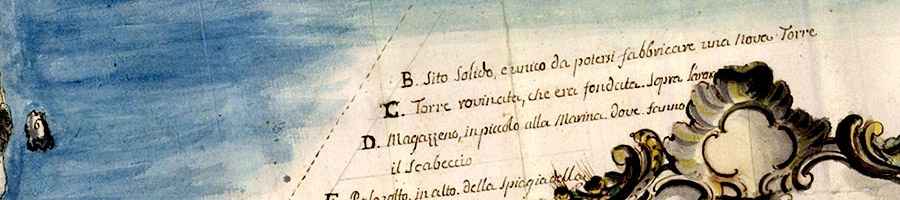 B. Sito Solido, e unico da potersi fabbricare una Nova Torre
C. Torre rovinata, che era fondata Sopra
D. Magazzeno, in piccolo alla Marina dove fanno
il Scabeccio
in alto della Spiagia della